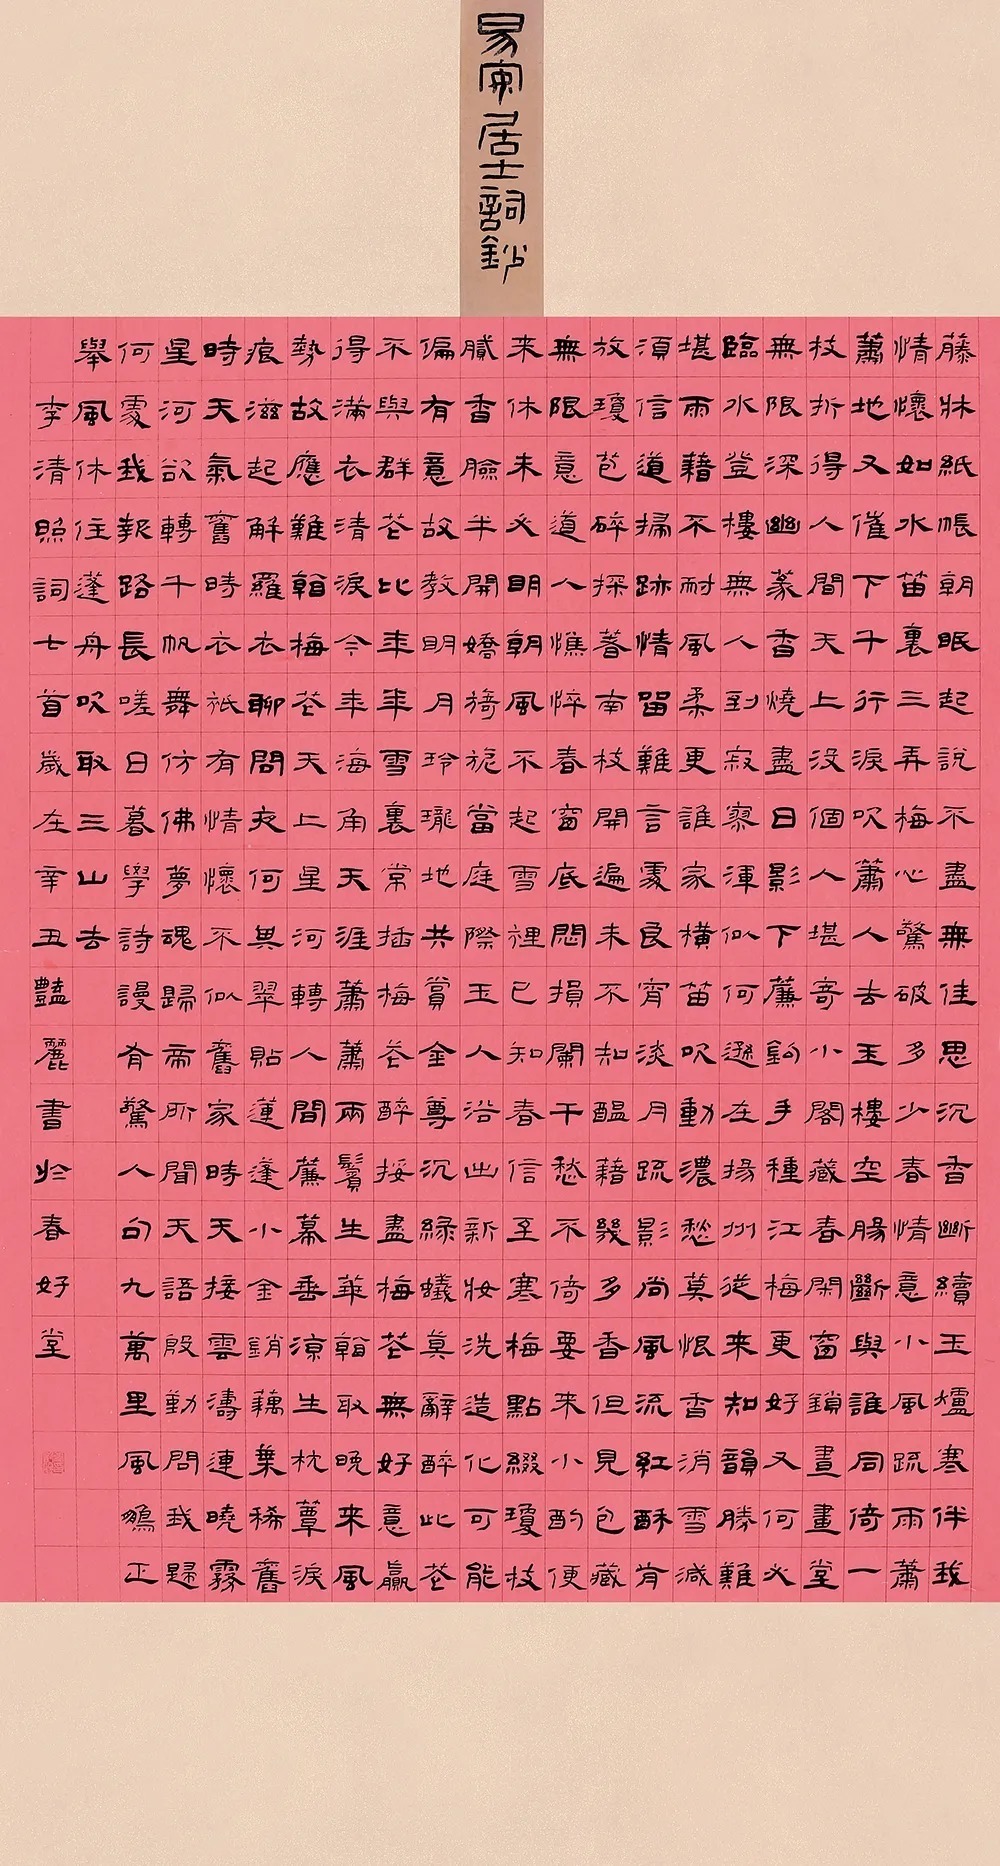 易安居士詞鈔
藤牀紙帳朝眠起說不盡無佳思沉香斷續玉爐寒伴我
情懷如水笛裏三弄梅心驚破多少春情意小風疏雨蕭
蕭地又催下千行淚吹簫人去玉樓空腸斷與誰同倚一
枝折得人間天上沒個人堪寄小閣藏春閑窗鎖晝畫堂
無限深幽篆香燒盡日影下簾鉤手種江梅更好又何必
臨水登樓無人到寂寥渾似何遜在揚州從來知韻勝難
堪雨藉不耐風柔更誰家橫笛吹動濃愁莫恨香消雪減
須信道掃跡情留難言處良宵淡月疏影尚風流紅酥肯
放瓊苞碎探著南枝開遍未不知醞藉幾多香但見包藏
無限意道人憔悴春窗底悶損闌干愁不倚要來小酌便
來休未必明朝風不起雪裡已知春信至寒梅點綴瓊枝
膩香臉半開嬌旖旎當庭際玉人浴出新妝洗造化可能
偏有意故教明月玲瓏地共賞金尊沉綠蟻莫辭醉此花
不與群花比年年雪裏常插梅花醉挼盡梅花無好意贏
得滿衣清淚今年海角天涯蕭蕭兩鬢生華看取晚來風
勢故應難看梅花天上星河轉人間簾幕垂涼生枕蕈淚
痕滋起解羅衣聊問夜何其翠貼蓮蓬小金銷藕葉稀舊
時天氣舊時衣祇有情懷不似舊家時天接雲濤連曉霧
星河欲轉千帆舞仿佛夢魂歸帝所聞天語殷勤問我歸
何處我報路長嗟日暮學詩謾有驚人句九萬里風鵬正
舉風休住蓬舟吹取三山去
李清照詞七首歲在辛丑豔麗書於春好堂